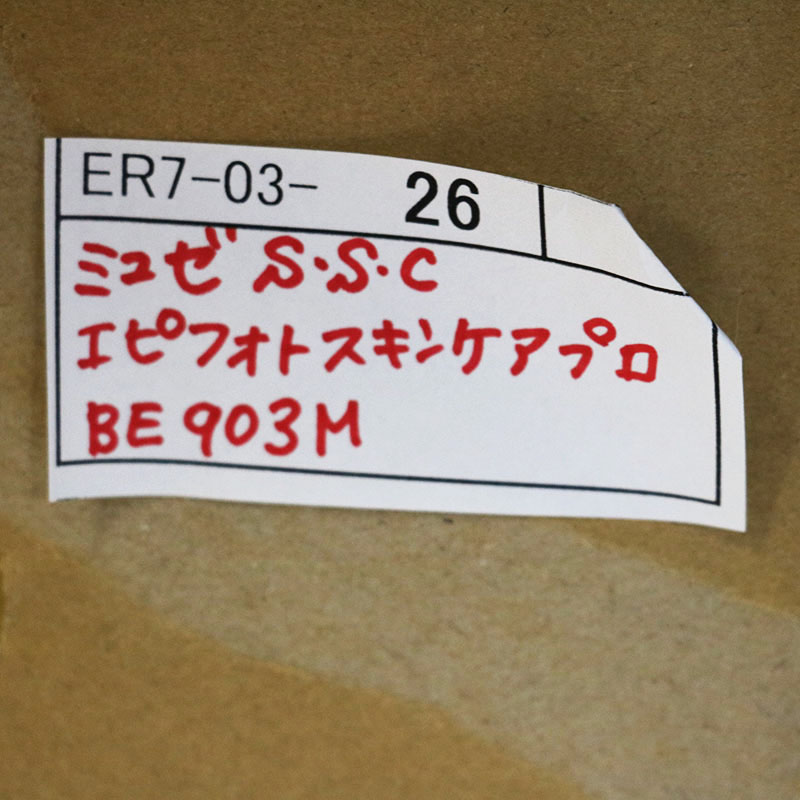 ER7-03- 26
ミュゼ S・S・C
エピフォトスキンケアプロ
BE903M